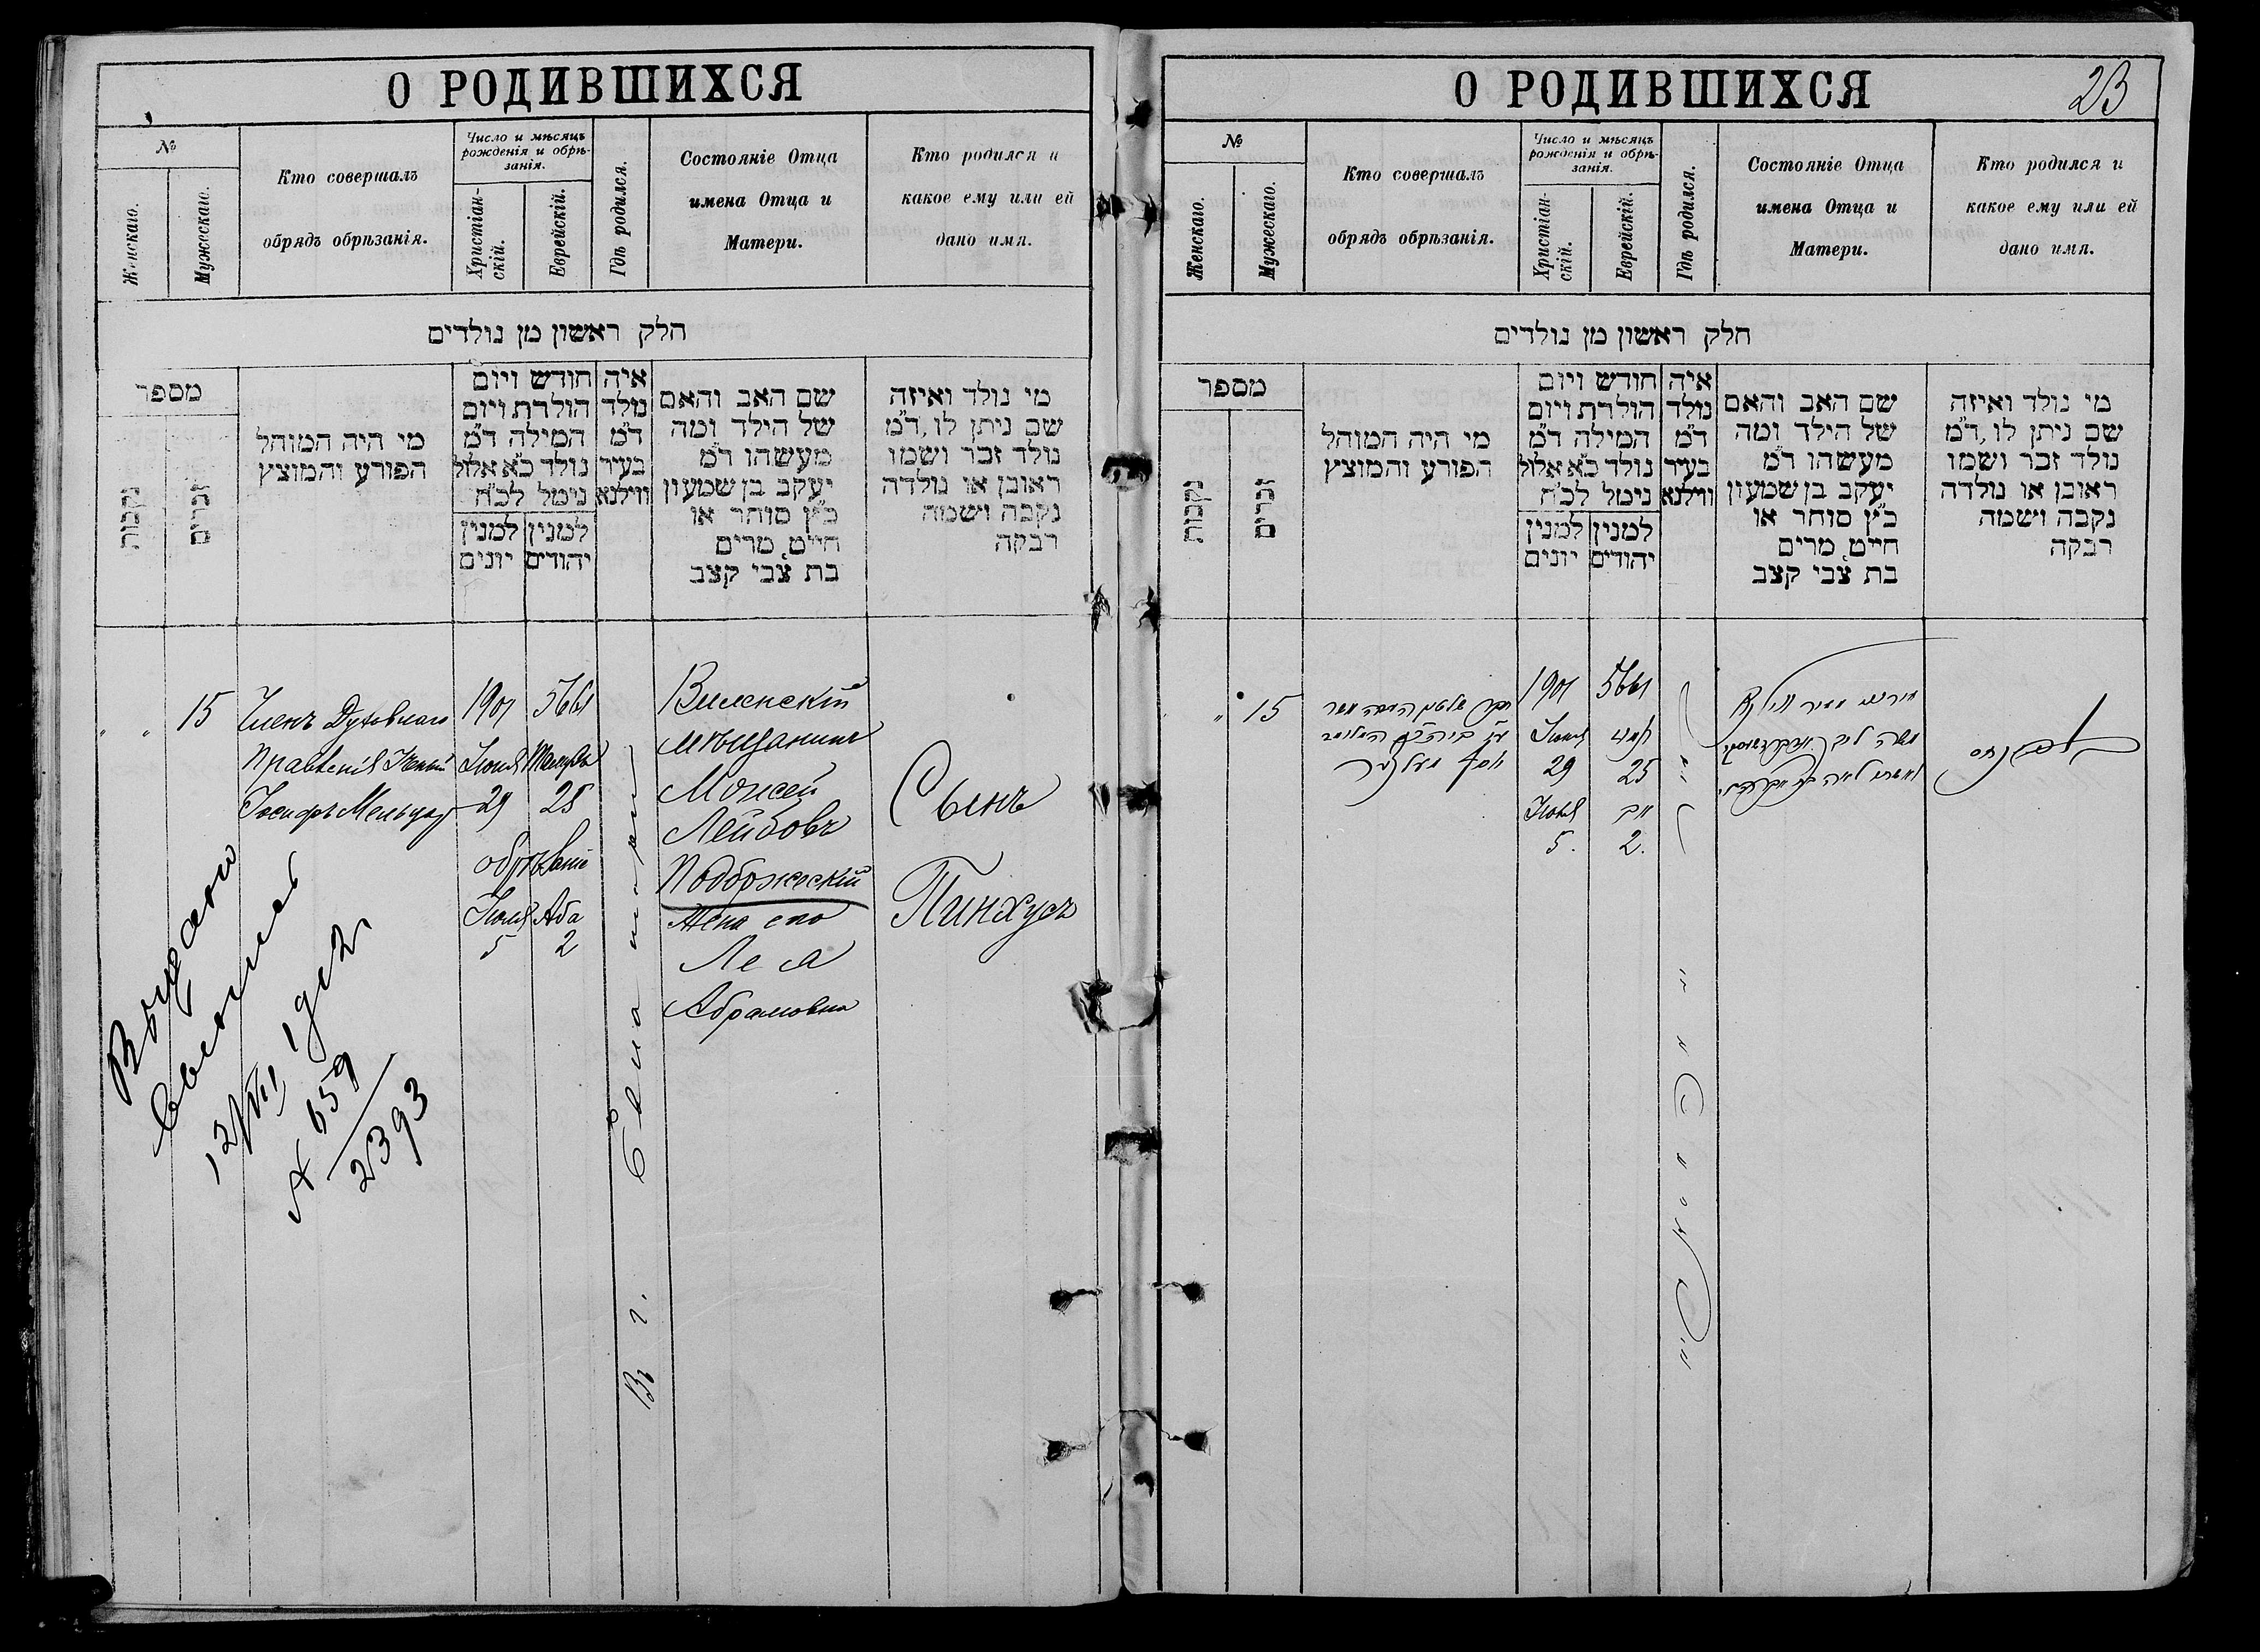 О РОДИВШИХСЯ
№
Женскаго.
Мужескаго.
Кто совершалъ
обрядъ обрѣзанія.
Число и мѣсяцъ
рожденія и обрѣ-
занія.
Христіан-
скій.
Еврейскій.
Гдѣ родился.
Состояніе Отца
имена Отца и
Матери.
Кто родился и
какое ему или ей
дано имя.
חלק ראשון מן נולדים
מספר
נקבות
זכרים
מי היה המוהל
הפורע והמוצץ
חודש ויום
הולדת ויום
המילה ד״מ
נולד כ״א אלול
נימל לכ״ח
למנין
יונים
למנין
יהודים
איה
נולד
ד״מ
בעיר
ווילנא
שם האב והאם
של הילד ומה
מעשהו ד״מ
יעקב בן שמעון
כ״ץ סוחר או
חייט, מרים
בת צבי קצב
מי נולד ואיזה
שם ניתן לו, ד״מ
נולד זכר ושמו
ראובן או נולדה
נקבה ושמה
רבקה
" " 15
Членъ Духовнаго
Правленія
Іосифъ Мельцеръ
1901 5661
Іюня Тамузъ
29 25
обрѣзаніе
Іюля Аба
5 2
Въ г.
Виленскій
мѣщанинъ
Мовсей
Лейбовъ
Подборжескій
Жена его
Лея
Абрамовна
Сынъ
Пинхусъ
12/VIII
№ 659
2393
О РОДИВШИХСЯ
23
№
Женскаго.
Мужескаго.
Кто совершалъ
обрядъ обрѣзанія.
Число и мѣсяцъ
рожденія и обрѣ-
занія.
Христіан-
скій.
Еврейскій.
Гдѣ родился.
Состояніе Отца
имена Отца и
Матери.
Кто родился и
какое ему или ей
дано имя.
חלק ראשון מן נולדים
מספר
נקבות
זכרים
מי היה המוהל
הפורע והמוצץ
חודש ויום
הולדת ויום
המילה ד״מ
נולד כ״א אלול
נימל לכ״ח
למנין
יונים
למנין
יהודים
איה
נולד
ד״מ
בעיר
ווילנא
שם האב והאם
של הילד ומה
מעשהו ד״מ
יעקב בן שמעון
כ״ץ סוחר או
חייט, מרים
בת צבי קצב
מי נולד ואיזה
שם ניתן לו, ד״מ
נולד זכר ושמו
ראובן או נולדה
נקבה ושמה
רבקה
" 15
1901 5661
Іюня תמוז
29 25
5. 2.
משה ליב
ואשתו לאה בת אברהם
פנחס